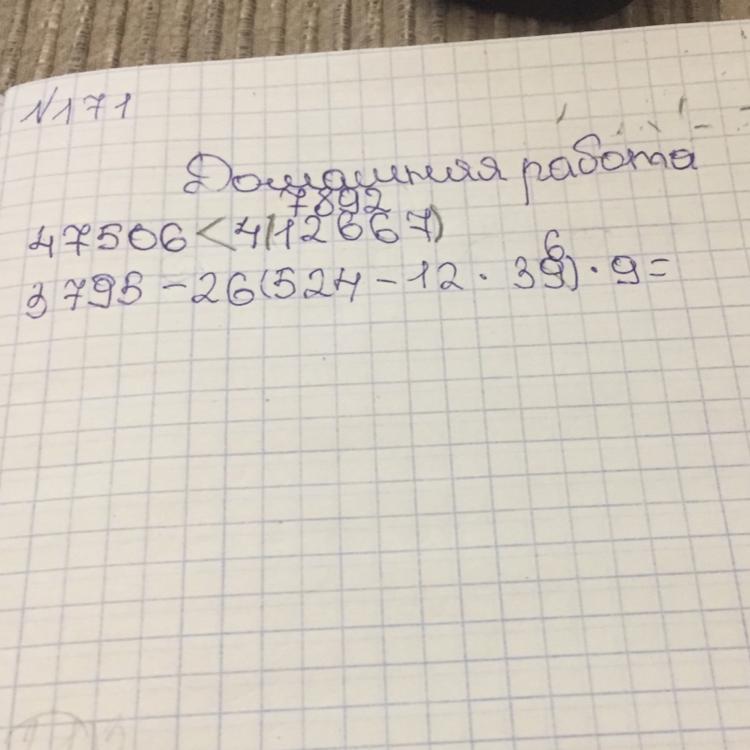 N171
Домашняя работа
7892
47506 < 4(12667)
6
3795 - 26(524 - 12 · 39) · 9 =